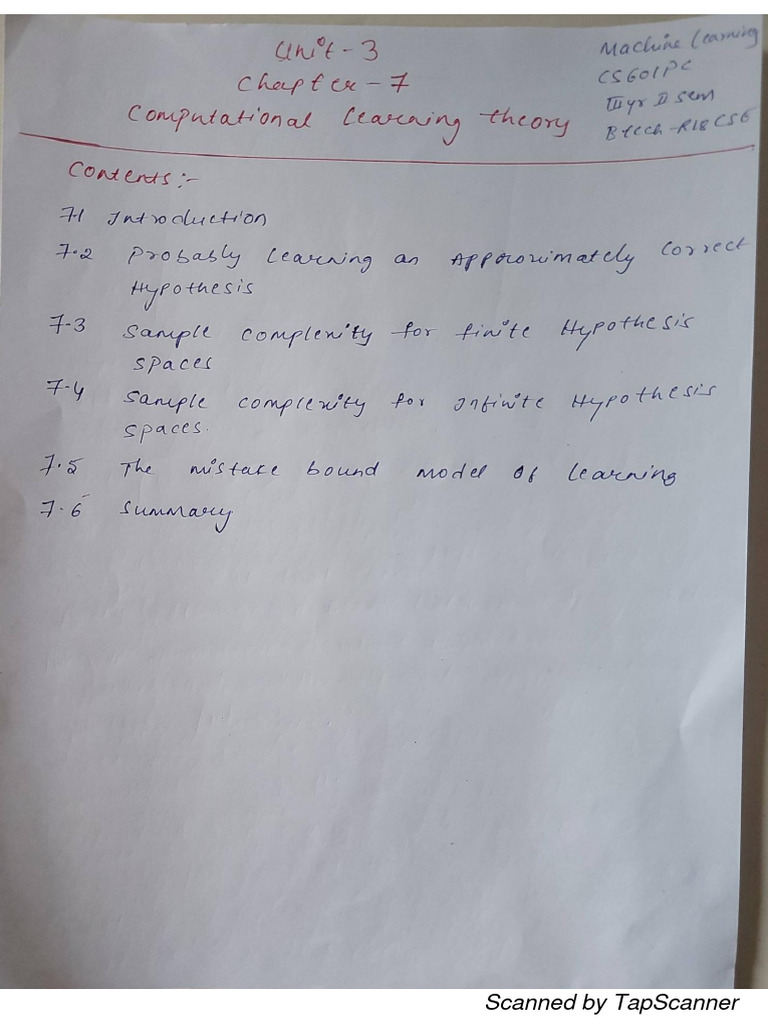 Unit - 3
Chapter - 7
Computational learning theory
Machine Learning
CS601PC
III yr II sem
Btech - R18 CSE
Contents :-
7.1 Introduction
7.2 Probably learning an Approximately Correct
Hypothesis
7.3 Sample complexity for finite Hypothesis
spaces
7.4 Sample complexity for Infinite Hypothesis
spaces.
7.5 The mistake bound model of learning
7.6 Summary
Scanned by TapScanner